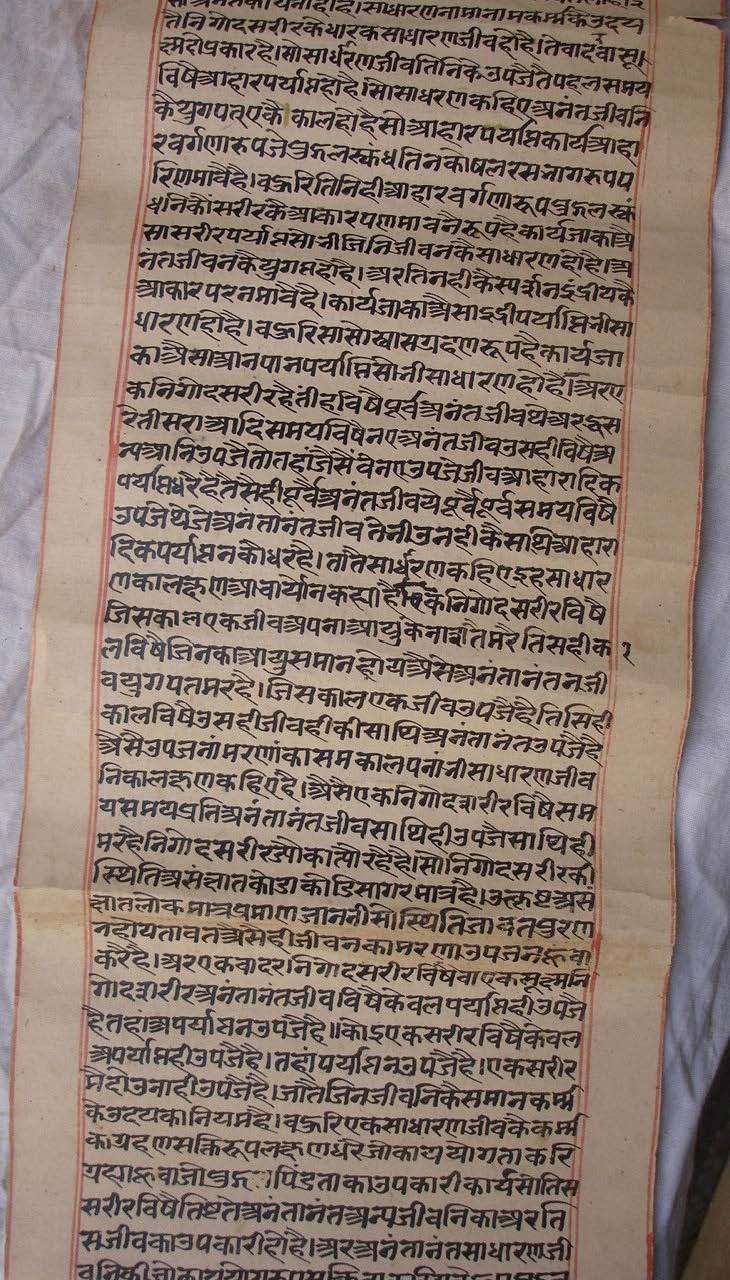 तेनिगोदसरीरकेधारकसाधारणजीवहोहै।तेवादरवासू।
ह्मदोप्रकारहै।सोसाधरणजीवतिनिकेउपजैतैपहलसमय
विषैआहारपर्याप्तहोहै।सोसाधरणकहिएअनंतजीवनि
कैयुगपत्एकैकालहोहैसोआहारपर्याप्तिकार्यआहा
रवर्गणारूपजेपुजलस्कंधतिनकोषलरसनागरूपप
रिणमावैहै।वक्ररितिनिहीआहारवर्गणारूपपुजलस्कं
धनिकौसरीरकैआकारपणमावनैरूपहैकार्यजाकाअै
सासरीरपर्याप्तसोनीजिनिजीवनकैसाधारणहोहै।अ
नंतजीवनकैयुगप्तहोहै।अरतिनहीकैस्पर्शनइंद्रीयकै
आकारपरनमावैहै।कार्यजाकाअैसाइंद्रीपर्याप्तिनीसा
धारणहोहै।वक्ररिसासोस्वासग्रहणरूपहैकार्यजा
काअैसाआनपानपर्याप्तिसोनीसाधारणहोहै।अरए
कनिगोदसरीरहैतीहविषैपूर्वअनंतजीवथेअरदूस
रेतीसराआदिसमयविषैनएअनंतजीवउसहीविषैअ
न्यआनिउपजैतातहांजैसैवेनएउपजेजीवआहारादिक
पर्याप्तधरैहैतैसैहीपूर्वैअनंतजीवयपूर्वपूर्वसमयविषै
उपजेथेजेअनंतानंतजीवतेनीउनहीकैसाथिआहारा
दिकपर्याप्तनकौधरेहै।तातैसाधरणकहिएइहसाधार
णकालक्षणआचार्यानकह्याहैएकनिगोदसरीरविषै
जिसकालएकजीवअपनाआयुकेनाशतैमरैतिसहीक १
लविषैजिनकाआयुसमानहोयअैसेअनंतानंतनजी
वयुगपतमरहै।जिसकालएकजीवउपजैहैतिसिही
कालविषैउसहीजीवहीकीसाथिअनंतानंतउपजैहै
अैसैउपजनांमरणांकासमकालपनांनीसाधारणजीव
निकालक्षणकहिएहै।अैसैएकनिगोदशरीरविषैसम
यसमयप्रतिअनंतानंतजीवसाथिहीउपजैसाथिही
मरहैनिगोदसरीरज्योकात्योरहैहै।सोनिगोदसरीरकी
स्थितिअसंज्ञातकोडाकोडिसागरमात्रहै।उत्कृष्टअसं
ज्ञातलोकमात्रप्रमाणजाननीसोस्थितिजावतपूरण
नहोयतावतअैसेहीजीवनकामरणाउपजनहूवा
करैहै।अरएकवादरनिगोदसरीरविषैवाएकसूक्ष्मनि
गोदशरीरअनंतानंतजीवविषैकेवलपर्याप्तहीउपजै
हैतहांअपर्याप्तनउपजैहै॥कोइएकसरीरविषैकेवल
अपर्याप्तहीउपजैहै।तहांपर्याप्तनउपजैहै।एकसरीर
मैदोउनाहीउपजैहै।जातैजिनजीवनिकैसमानकर्म
केउदयकानियमहै।वक्ररिएकसाधारणजीवकैकर्म
काग्रहणसक्तिरूपलक्षणधरैजोकाययोगताकरि
ग्रह्याहूवाजोपुज पिंडताकाउपकारीकार्यसोतिस
सरीरविषैतिष्टतेअनंतानंतअन्यजीवनिकाअरति
सजीवकाउपकारीहोहै।अरअनंतानंतसाधारणजी